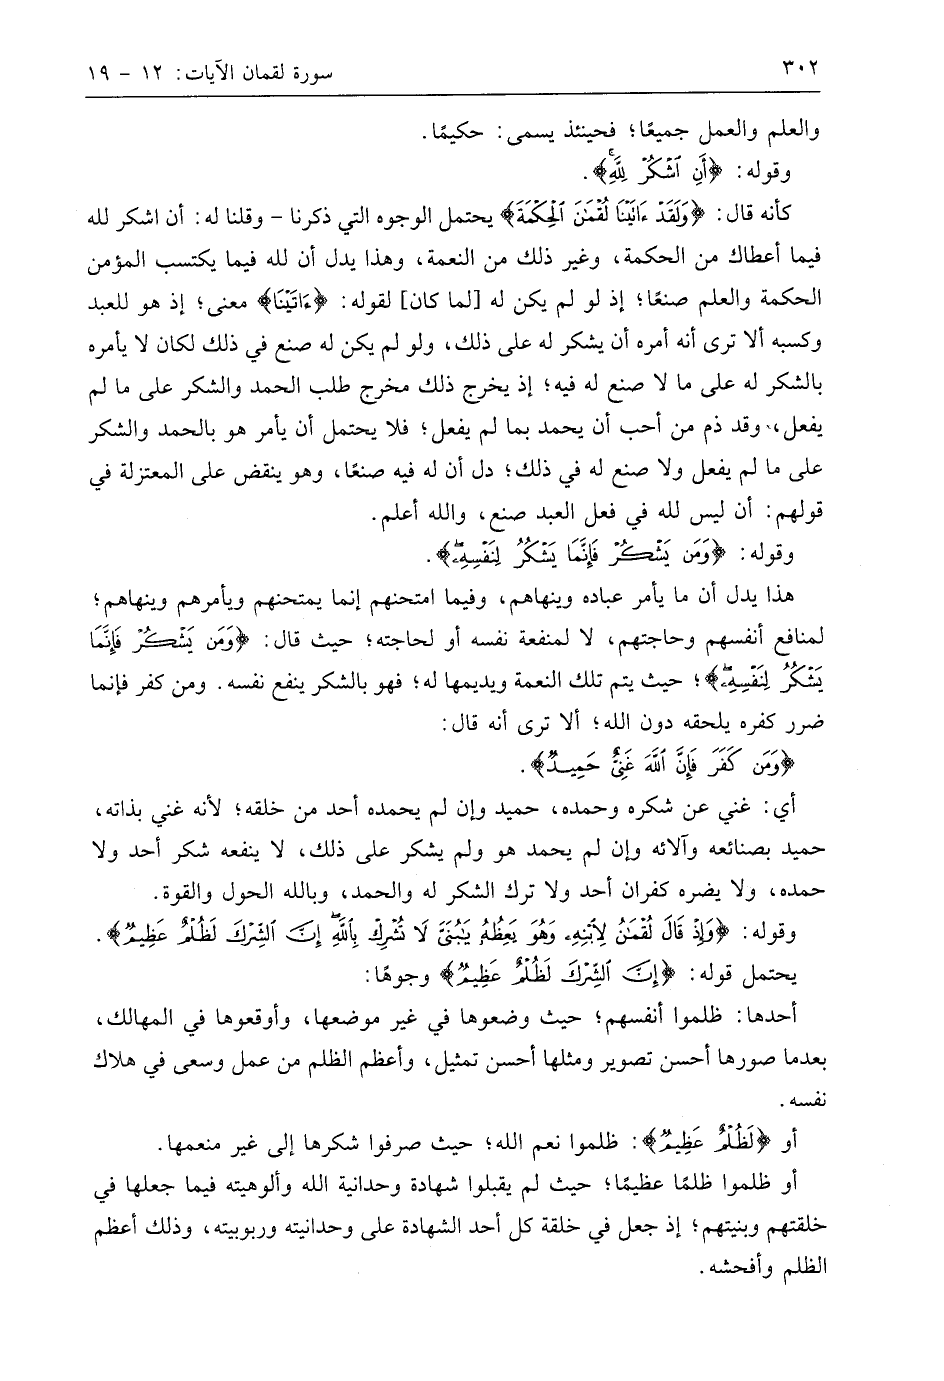 ٣٠٢
سورة لقمان الآيات: ١٢ - ١٩
والعلم والعمل جميعًا؛ فحينئذ يسمى: حكيمًا.
وقوله: ﴿أَنِ ٱشْكُرْ لِلَّهِۚ﴾.
كأنه قال: ﴿وَلَقَدْ ءَاتَيْنَا لُقْمَٰنَ ٱلْحِكْمَةَ﴾ يحتمل الوجوه التي ذكرنا - وقلنا له: أن اشكر لله
فيما أعطاك من الحكمة، وغير ذلك من النعمة، وهذا يدل أن لله فيما يكتسب المؤمن
الحكمة والعلم صنعًا؛ إذ لو لم يكن له [لما كان] لقوله: ﴿ءَاتَيْنَا﴾ معنى؛ إذ هو للعبد
وكسبه ألا ترى أنه أمره أن يشكر له على ذلك، ولو لم يكن له صنع في ذلك لكان لا يأمره
بالشكر له على ما لا صنع له فيه؛ إذ يخرج ذلك مخرج طلب الحمد والشكر على ما لم
يفعل، وقد ذم من أحب أن يحمد بما لم يفعل؛ فلا يحتمل أن يأمر هو بالحمد والشكر
على ما لم يفعل ولا صنع له في ذلك؛ دل أن له فيه صنعًا، وهو ينقض على المعتزلة في
قولهم: أن ليس لله في فعل العبد صنع، والله أعلم.
وقوله: ﴿وَمَن يَشْكُرْ فَإِنَّمَا يَشْكُرُ لِنَفْسِهِۦۖ﴾.
هذا يدل أن ما يأمر عباده وينهاهم، وفيما امتحنهم إنما يمتحنهم ويأمرهم وينهاهم؛
لمنافع أنفسهم وحاجتهم، لا لمنفعة نفسه أو لحاجته؛ حيث قال: ﴿وَمَن يَشْكُرْ فَإِنَّمَا
يَشْكُرُ لِنَفْسِهِۦۖ﴾؛ حيث يتم تلك النعمة ويديمها له؛ فهو بالشكر ينفع نفسه. ومن كفر فإنما
ضرر كفره يلحقه دون الله؛ ألا ترى أنه قال:
﴿وَمَن كَفَرَ فَإِنَّ ٱللَّهَ غَنِىٌّ حَمِيدٌ﴾.
أي: غني عن شكره وحمده، حميد وإن لم يحمده أحد من خلقه؛ لأنه غني بذاته،
حميد بصنائعه وآلائه وإن لم يحمد هو ولم يشكر على ذلك، لا ينفعه شكر أحد ولا
حمده، ولا يضره كفران أحد ولا ترك الشكر له والحمد، وبالله الحول والقوة.
وقوله: ﴿وَإِذْ قَالَ لُقْمَٰنُ لِٱبْنِهِۦ وَهُوَ يَعِظُهُۥ يَٰبُنَىَّ لَا تُشْرِكْ بِٱللَّهِۖ إِنَّ ٱلشِّرْكَ لَظُلْمٌ عَظِيمٌ﴾.
يحتمل قوله: ﴿إِنَّ ٱلشِّرْكَ لَظُلْمٌ عَظِيمٌ﴾ وجوهًا:
أحدها: ظلموا أنفسهم؛ حيث وضعوها في غير موضعها، وأوقعوها في المهالك،
بعدما صورها أحسن تصوير ومثلها أحسن تمثيل، وأعظم الظلم من عمل وسعى في هلاك
نفسه.
أو ﴿لَظُلْمٌ عَظِيمٌ﴾: ظلموا نعم الله؛ حيث صرفوا شكرها إلى غير منعمها.
أو ظلموا ظلمًا عظيمًا؛ حيث لم يقبلوا شهادة وحدانية الله وألوهيته فيما جعلها في
خلقتهم وبنيتهم؛ إذ جعل في خلقة كل أحد الشهادة على وحدانيته وربوبيته، وذلك أعظم
الظلم وأفحشه.